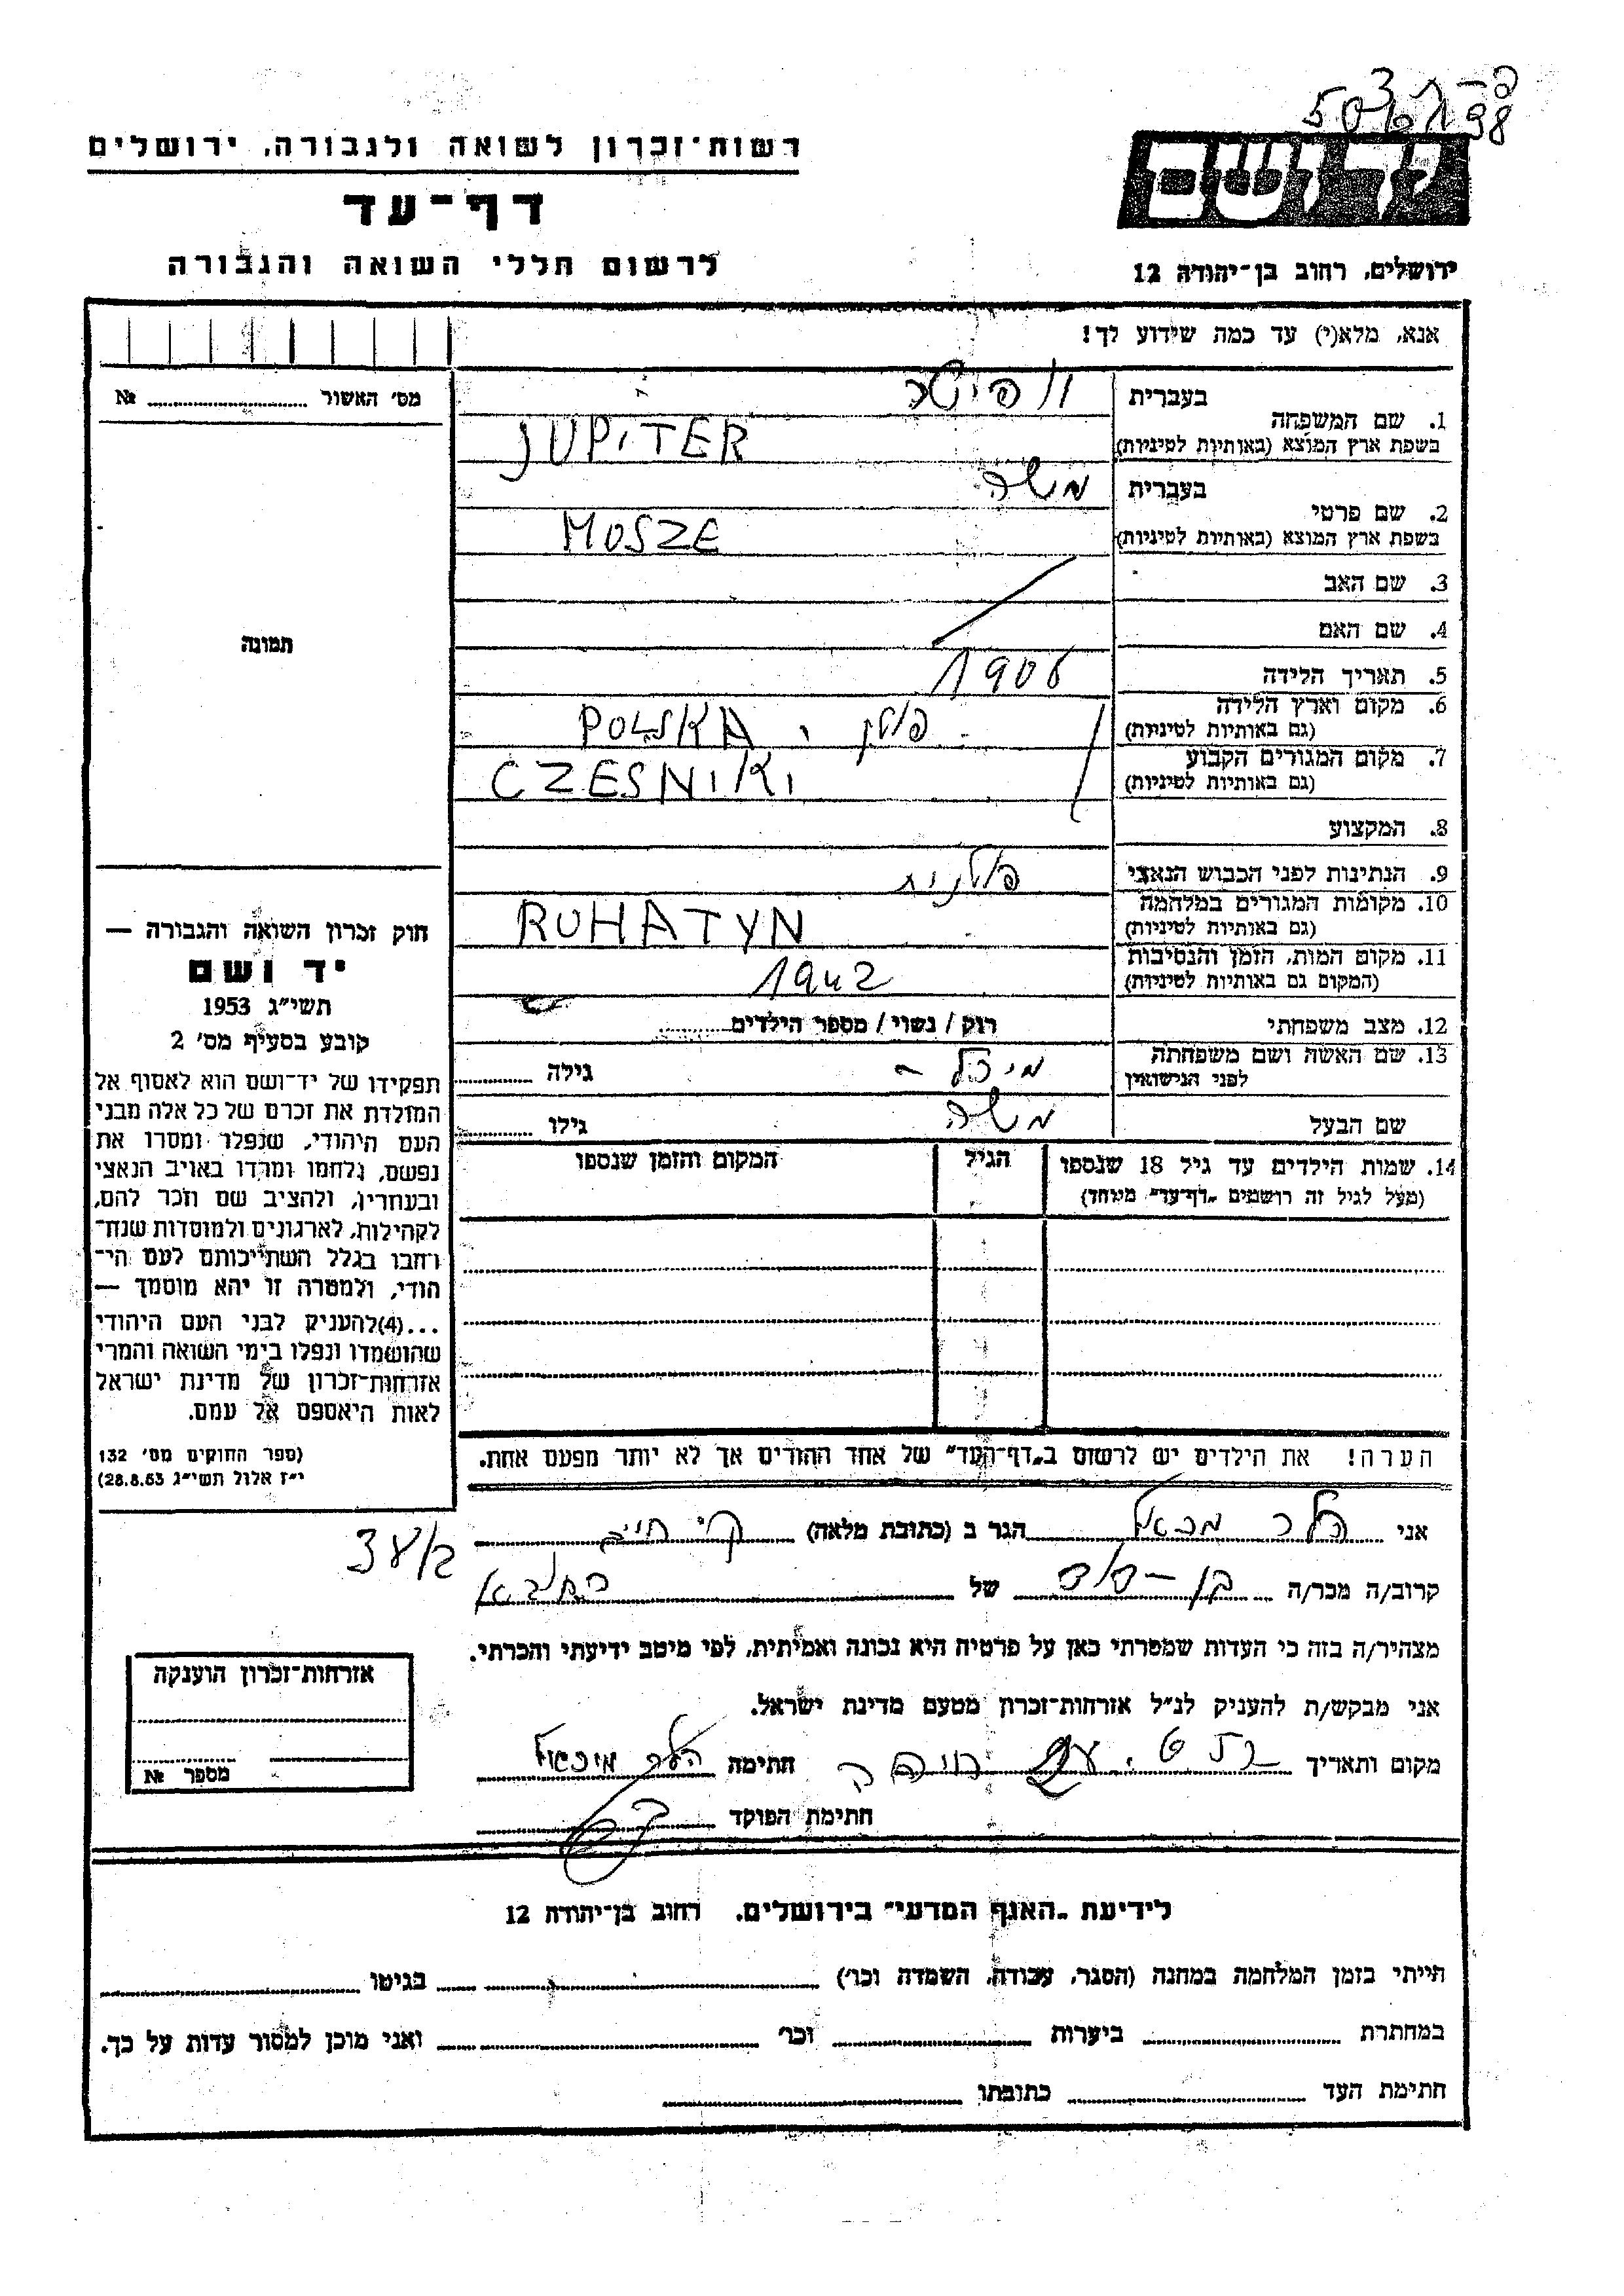 רשות־זכרון לשואה ולגבורה, ירושלים
דף־עד
לרשום חללי השואה והגבורה
ירושלים, רחוב בן־יהודה 12
אנא, מלא(י) עד כמה שידוע לך!
מס׳ האשור ........ №
בעברית
1. שם המשפחה
בשפת ארץ המוצא (באותיות לטיניות)
JUPITER
בעברית משה
2. שם פרטי
בשפת ארץ המוצא (באותיות לטיניות)
MOSZE
3. שם האב
4. שם האם
תמונה
5. תאריך הלידה 1906
6. מקום וארץ הלידה
(גם באותיות לטיניות)
פולין, POLSKA
7. מקום המגורים הקבוע
(גם באותיות לטיניות)
CZESNIKI
8. המקצוע
9. הנתינות לפני הכבוש הנאצי פולנית
10. מקומות המגורים במלחמה
(גם באותיות לטיניות)
RUHATYN
11. מקום המות, הזמן והנסיבות
(המקום גם באותיות לטיניות)
1942
12. מצב משפחתי רוק / נשוי / מספר הילדים........
13. שם האשה ושם משפחתה
לפני הנישואין
גילה ........
שם הבעל משה גילו ........
14. שמות הילדים עד גיל 18 שנספו
(מעל לגיל זה רושמים „דף־עד״ מיוחד)
הגיל
המקום והזמן שנספו
חוק זכרון השואה והגבורה —
יד ושם
תשי״ג 1953
קובע בסעיף מס׳ 2
תפקידו של יד־ושם הוא לאסוף אל
המולדת את זכרם של כל אלה מבני
העם היהודי, שנפלו ומסרו את
נפשם, נלחמו ומרדו באויב הנאצי
ובעוזריו, ולהציב שם וזכר להם,
לקהילות, לארגונים ולמוסדות שנח־
רבו בגלל השתייכותם לעם הי־
הודי, ולמטרה זו יהא מוסמך —
...(4)להעניק לבני העם היהודי
שהושמדו ונפלו בימי השואה והמרי
אזרחות־זכרון של מדינת ישראל
לאות היאספם אל עמם.
(ספר החוקים מס׳ 132
י״ז אלול תשי״ג 28.8.53)
הערה! את הילדים יש לרשום ב„דף־העד״ של אחד ההורים אך לא יותר מפעם אחת.
אני הלר מכאל הגר ב (כתובת מלאה) קר׳ חיים
קרוב/ה מכר/ה בן-דוד של
מצהיר/ה בזה כי העדות שמסרתי כאן על פרטיה היא נכונה ואמיתית, לפי מיטב ידיעתי והכרתי.
אני מבקש/ת להעניק לנ״ל אזרחות־זכרון מטעם מדינת ישראל.
מקום ותאריך חתימה הלר מיכאל
חתימת הפוקד
אזרחות־זכרון הוענקה
מספר №
לידיעת „האגף המדעי״ בירושלים, רחוב בן־יהודה 12
הייתי בזמן המלחמה במחנה (הסגר, עבודה, השמדה וכו׳) ........ בגיטו ........
במחתרת ........ ביערות ........ וכו׳ ........ ואני מוכן למסור עדות על כך.
חתימת העד ........ כתובתו ........